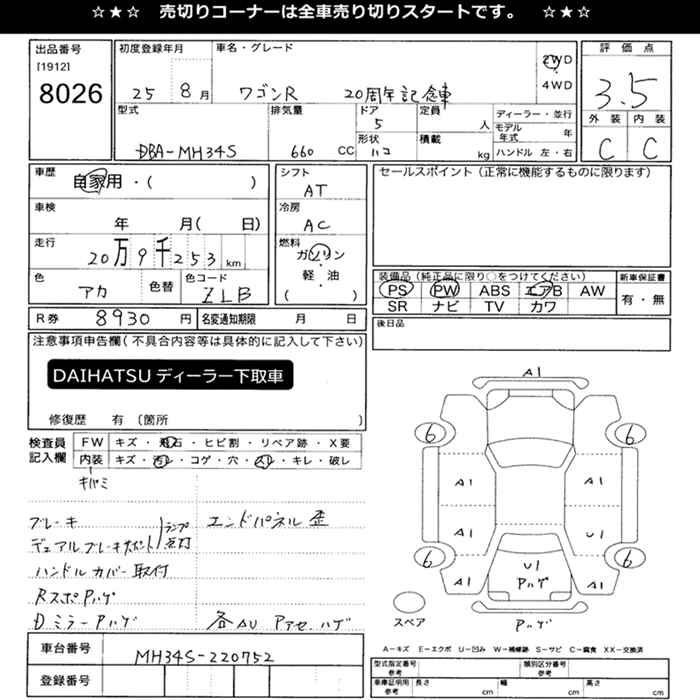 ☆★☆ 売切りコーナーは全車売り切りスタートです。 ☆★☆
出品番号
[1912]
8026
初度登録年月
25 8月
車名・グレード
ワゴンR 20周年記念車
2WD
4WD
評価点
3.5
外装 内装
C C
型式
DBA-MH34S
排気量
660 CC
ドア
5
形状
ハコ
定員
人
積載
kg
ディーラー・並行
モデル年式 年
ハンドル 左・右
車歴
自家用・( )
車検
年 月( 日)
走行
20万9千253km
色
アカ
色替
色コード
ZLB
シフト
AT
冷房
AC
燃料
ガソリン
軽・油
( )
セールスポイント(正常に機能するものに限ります)
装備品(純正品に限り○をつけてください)
PS PW ABS エアB AW
SR ナビ TV カワ
新車保証書
有・無
後日品
R券 8930円
名変通知期限 月 日
注意事項申告欄(不具合内容等は具体的に記入して下さい)
DAIHATSU ディーラー下取車
修復歴 有 〔箇所 〕
検査員
記入欄
FW キズ・飛石・ヒビ割・リペア跡・X要
内装 キズ・汚レ・コゲ・穴・スレ・キレ・破レ
キバミ
ブレーキ
デュアルブレーキサポート
ランプ点灯
ハンドルカバー取付
RスポPハゲ
DミラーPハゲ
エンドパネル歪
各AU Pアセ、ハゲ
車台番号
MH34S-220752
登録番号
A1
6 6
A1 A1
A1 U1
6 6
A1 U1 A1
Pハゲ
スペア
Pハゲ
A-キズ E-エクボ U-凹み W-補修跡 S-サビ C-腐食 XX-交換済
型式指定番号
参考
類別区分番号
参考
車庫証明用
参考
長さ cm
幅 cm
高さ cm